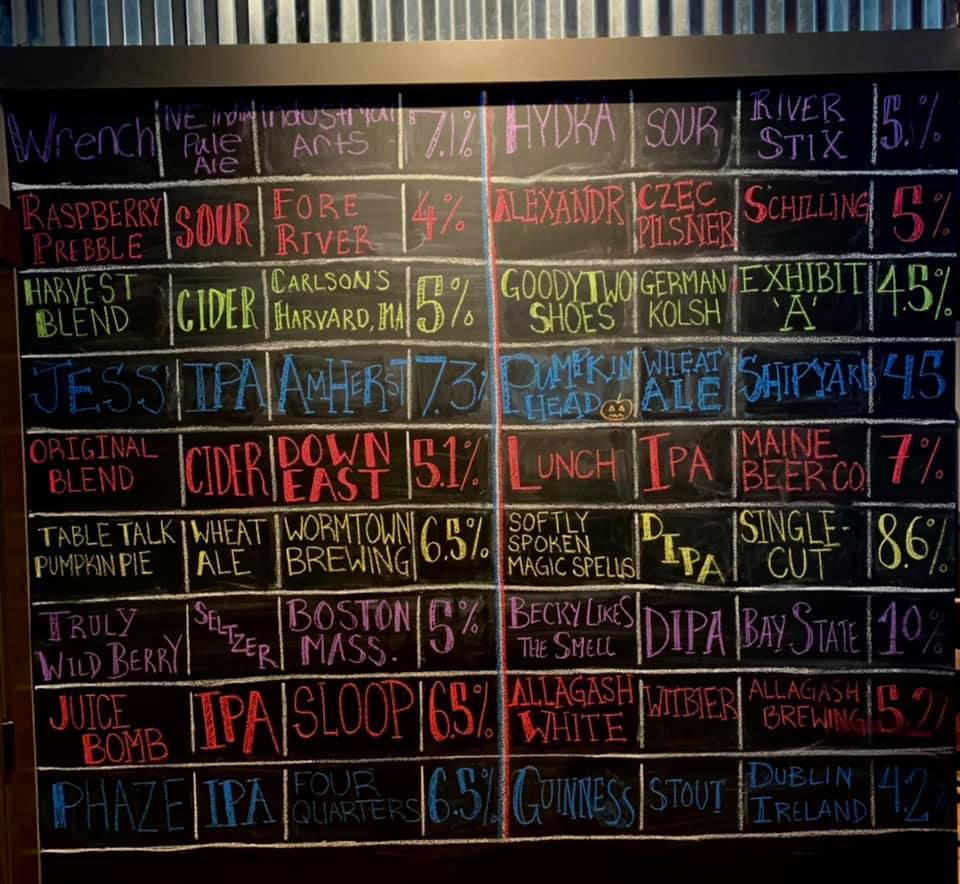 Wrench NE India Pale Ale Industrial Arts 7.1% HYDRA SOUR RIVER STIX 5.%
RASPBERRY PREBBLE SOUR FORE RIVER 4% ALEXANDR CZEC PILSNER SCHILLING 5%
HARVEST BLEND CIDER CARLSON'S HARVARD, MA 5% GOODY TWO SHOES GERMAN KOLSH EXHIBIT 'A' 4.5%
JESS IPA AMHERST 7.3% PUMPKIN HEAD WHEAT ALE SHIPYARD 45
ORIGINAL BLEND CIDER DOWN EAST 5.1% LUNCH IPA MAINE BEER CO. 7%
TABLE TALK PUMPKIN PIE WHEAT ALE WORMTOWN BREWING 6.5% SOFTLY SPOKEN MAGIC SPELLS DIPA SINGLE-CUT 8.6%
TRULY WILD BERRY SELTZER BOSTON MASS. 5% BECKY LIKES THE SMELL DIPA BAY STATE 10%
JUICE BOMB IPA SLOOP 6.5% ALLAGASH WHITE WITBIER ALLAGASH BREWING 5.2%
PHAZE IPA FOUR QUARTERS 6.5% GUINNESS STOUT DUBLIN IRELAND 4.2%